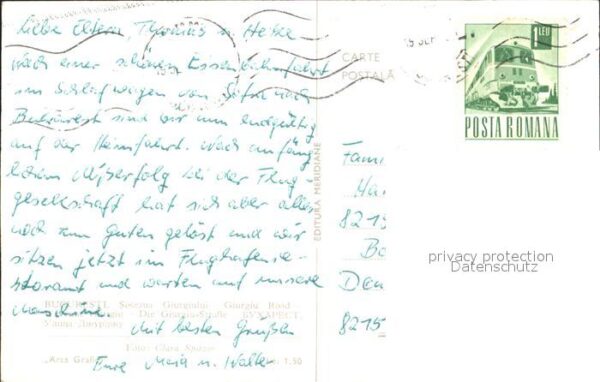 Liebe Eltern Thomas u. Heike
Nach einer schönen Eisenbahnfahrt
im Schlafwagen von Sofia nach
Bukarest sind wir nun endgültig
auf der Heimfahrt. Nach anfäng-
lichem Mißerfolg bei der Flug-
gesellschaft hat sich aber alles
noch zum Guten gelöst und wir
sitzen jetzt im Flughafenre-
storant und warten auf unsere
Maschine.
Mit besten Grüßen
Eure Maria u. Walter
BUCUREȘTI. Șoseaua Giurgiului - Giurgiu Road -
Die Giurgiu-Straße - БУХАРЕСТ.
Foto: Clara Spitzer
"Arta Grafică
1.50
EDITURA MERIDIANE
CARTE
POSTALĂ
1 LEU
POSTA ROMANA
Fami
Ha
8215
Deu
8215
privacy protection
Datenschutz